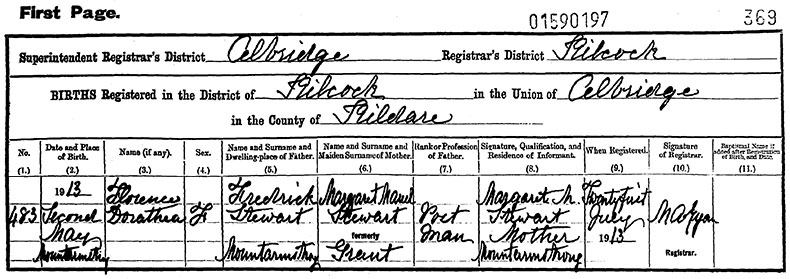 First Page.
01590197 369
Superintendent Registrar's District Celbridge Registrar's District Kilcock
BIRTHS Registered in the District of Kilcock in the Union of Celbridge
in the County of Kildare
No. Date and Place of Birth. Name (if any). Sex. Name and Surname and Dwelling-place of Father. Name and Surname and Maiden Surname of Mother. Rank or Profession of Father. Signature, Qualification, and Residence of Informant. When Registered. Signature of Registrar. Baptismal Name if added after Registration of Birth, and Date.
(1.) (2.) (3.) (4.) (5.) (6.) (7.) (8.) (9.) (10.) (11.)
1913 Florence Fredrick Margaret Margaret M. Twenty first
483 Second Dorathea F Stewart Stewart Post Stewart July
May formerly man Mother 1913
Mountarmstrong Mountarmstrong Grant Mountarmstrong Registrar.